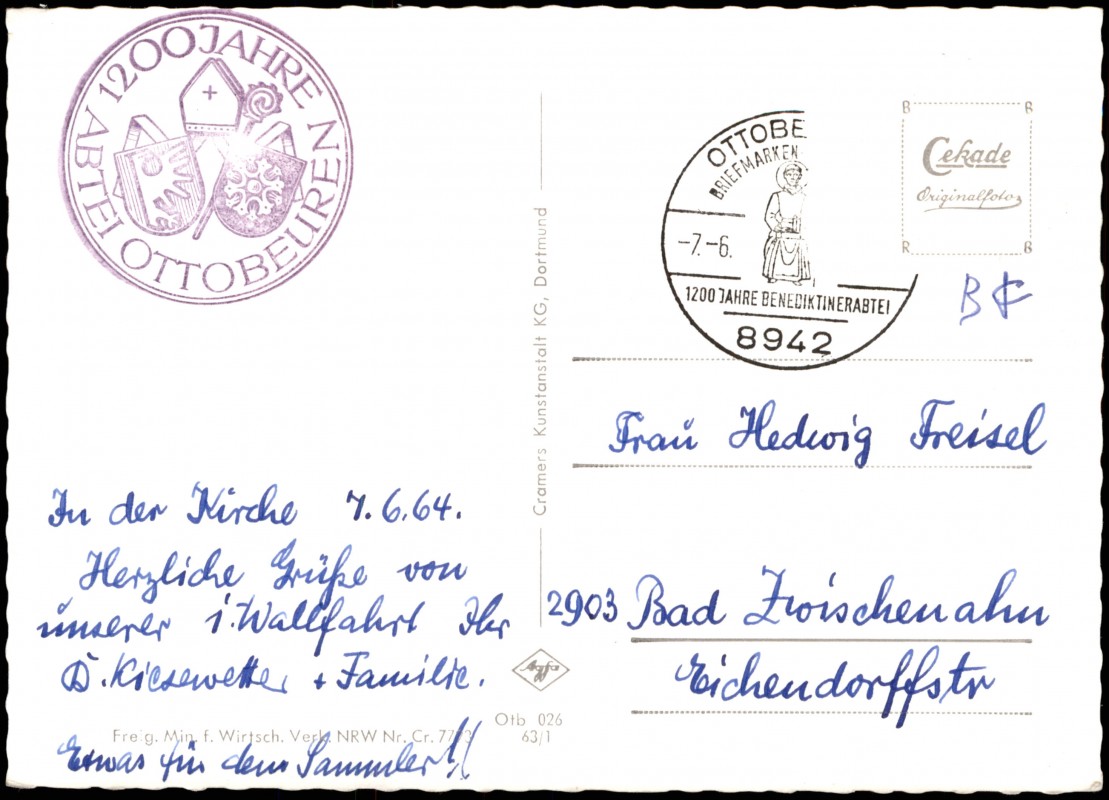 1200 JAHRE
ABTEI OTTOBEUREN
OTTOBE
BRIEFMARKEN
-7.-6.
1200 JAHRE BENEDIKTINERABTEI
8942
B B
Cekade
Originalfoto
R B
Cramers Kunstanstalt KG, Dortmund
Frau Hedwig Freisel
2903 Bad Zwischenahn
Eichendorffstr
In der Kirche 7.6.64.
Herzliche Grüße von
unserer 1. Wallfahrt Ihr
Kiesewetter + Familie.
Agfa
Otb 026
63/1
Freig. Min. f. Wirtsch. Verk. NRW Nr. Cr.
Etwas für dem Sammler!!